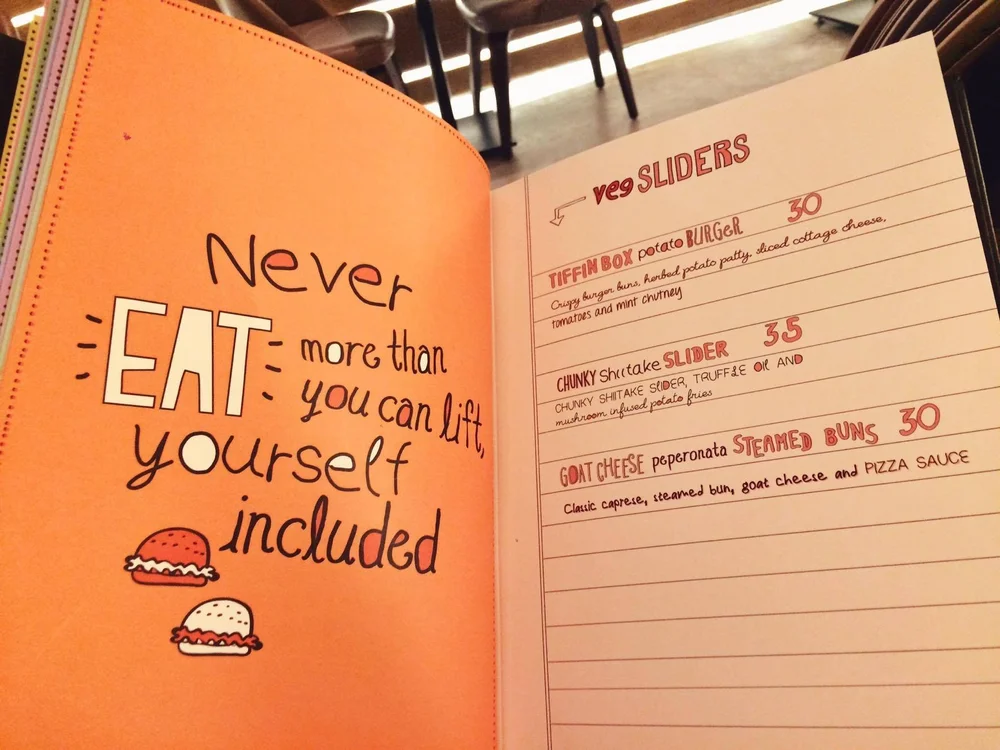 Never
EAT more than
you can lift,
yourself
included
veg SLIDERS
TIFFIN BOX potato BURGER 30
Crispy burger buns, herbed potato patty, sliced cottage cheese,
tomatoes and mint chutney
CHUNKY Shiitake SLIDER 35
CHUNKY SHIITAKE SLIDER, TRUFFLE OIL AND
mushroom infused potato fries
GOAT CHEESE peperonata STEAMED BUNS 30
Classic caprese, steamed bun, goat cheese and PIZZA SAUCE